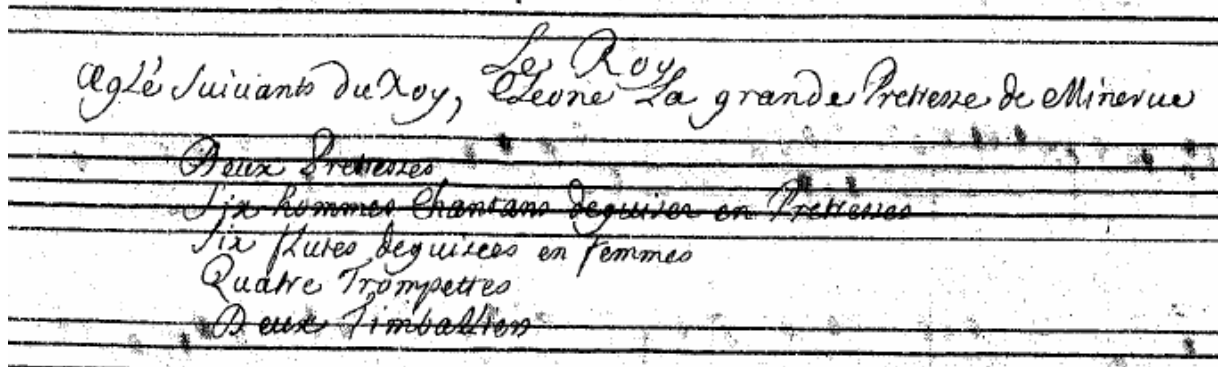 Le Roy
Æglé Suivants du Roy, Cleone La grande Pretresse de Minerve
Deux Pretresses
Six hommes Chantans deguisez en Pretresses
Six flutes deguisees en femmes
Quatre Trompettes
Deux Timballiers